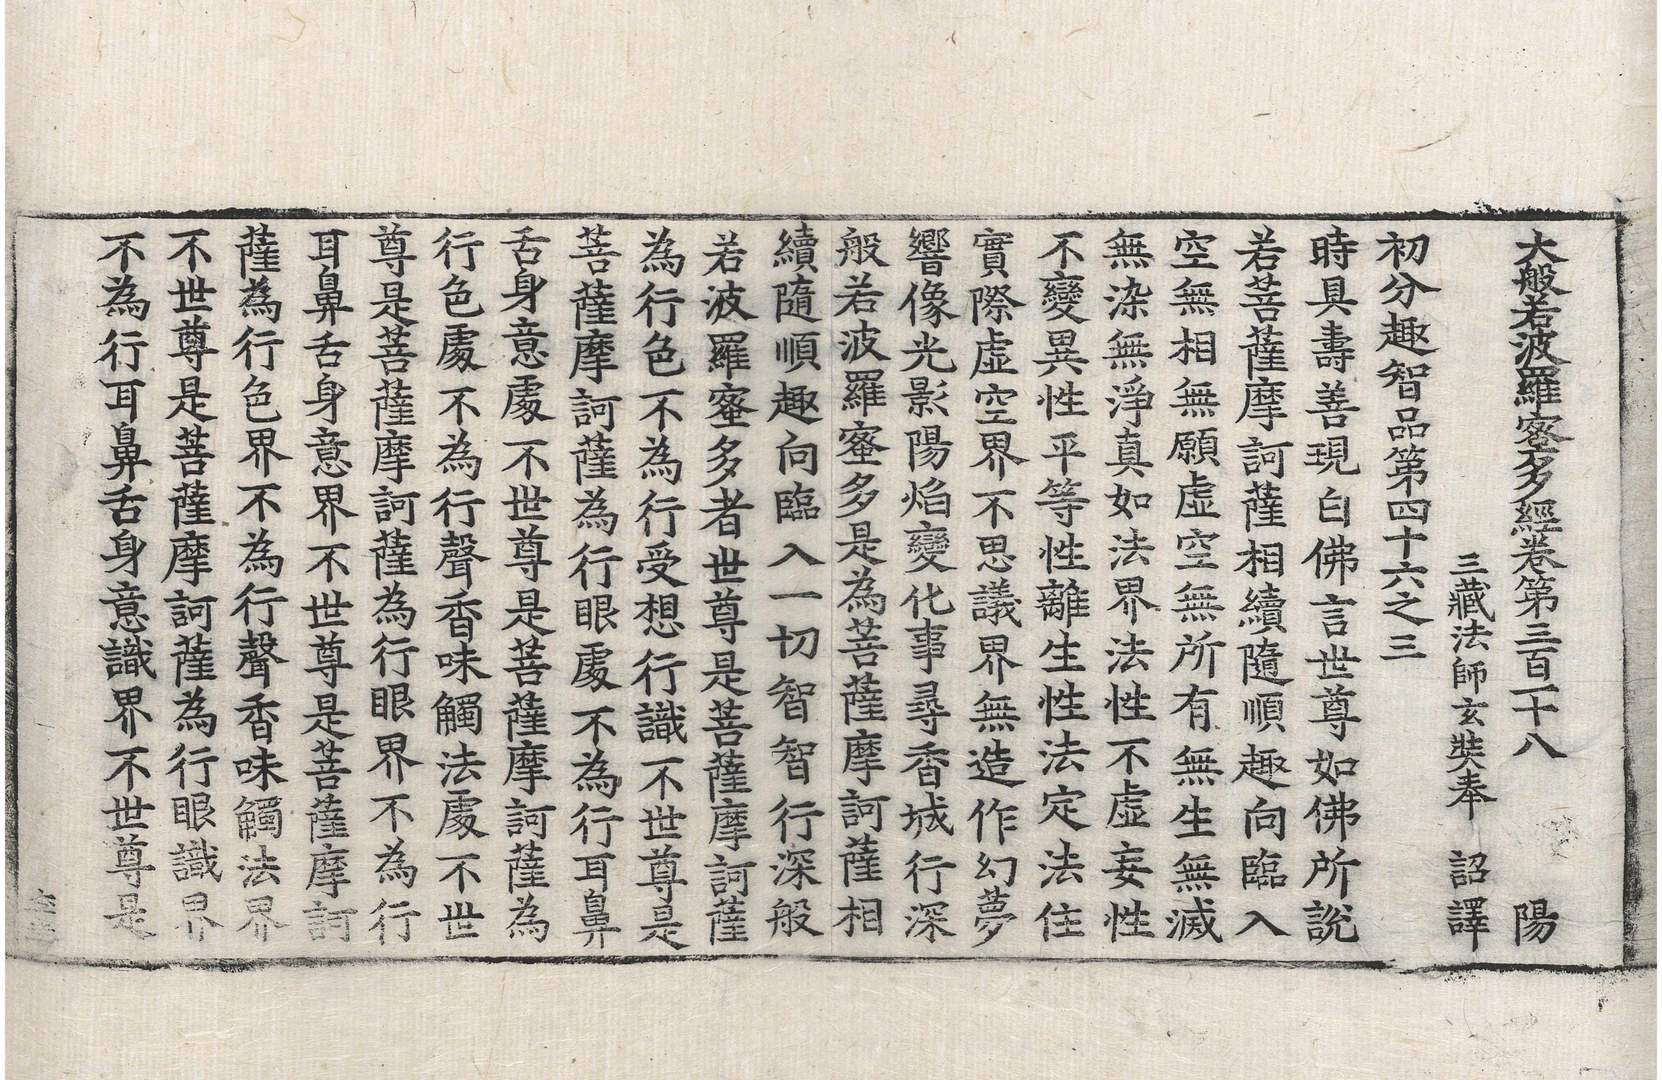 大般若波羅蜜多經卷第三百一十八 陽
三藏法師玄奘奉 詔譯
初分趣智品第四十六之三
時具壽善現白佛言世尊如佛所說
若菩薩摩訶薩相續隨順趣向臨入
空無相無願虛空無所有無生無滅
無染無淨真如法界法性不虛妄性
不變異性平等性離生性法定法住
實際虛空界不思議界無造作幻夢
響像光影陽焰變化事尋香城行深
般若波羅蜜多是為菩薩摩訶薩相
續隨順趣向臨入一切智智行深般
若波羅蜜多者世尊是菩薩摩訶薩
為行色不為行受想行識不世尊是
菩薩摩訶薩為行眼處不為行耳鼻
舌身意處不世尊是菩薩摩訶薩為
行色處不為行聲香味觸法處不世
尊是菩薩摩訶薩為行眼界不為行
耳鼻舌身意界不世尊是菩薩摩訶
薩為行色界不為行聲香味觸法界
不世尊是菩薩摩訶薩為行眼識界
不為行耳鼻舌身意識界不世尊是